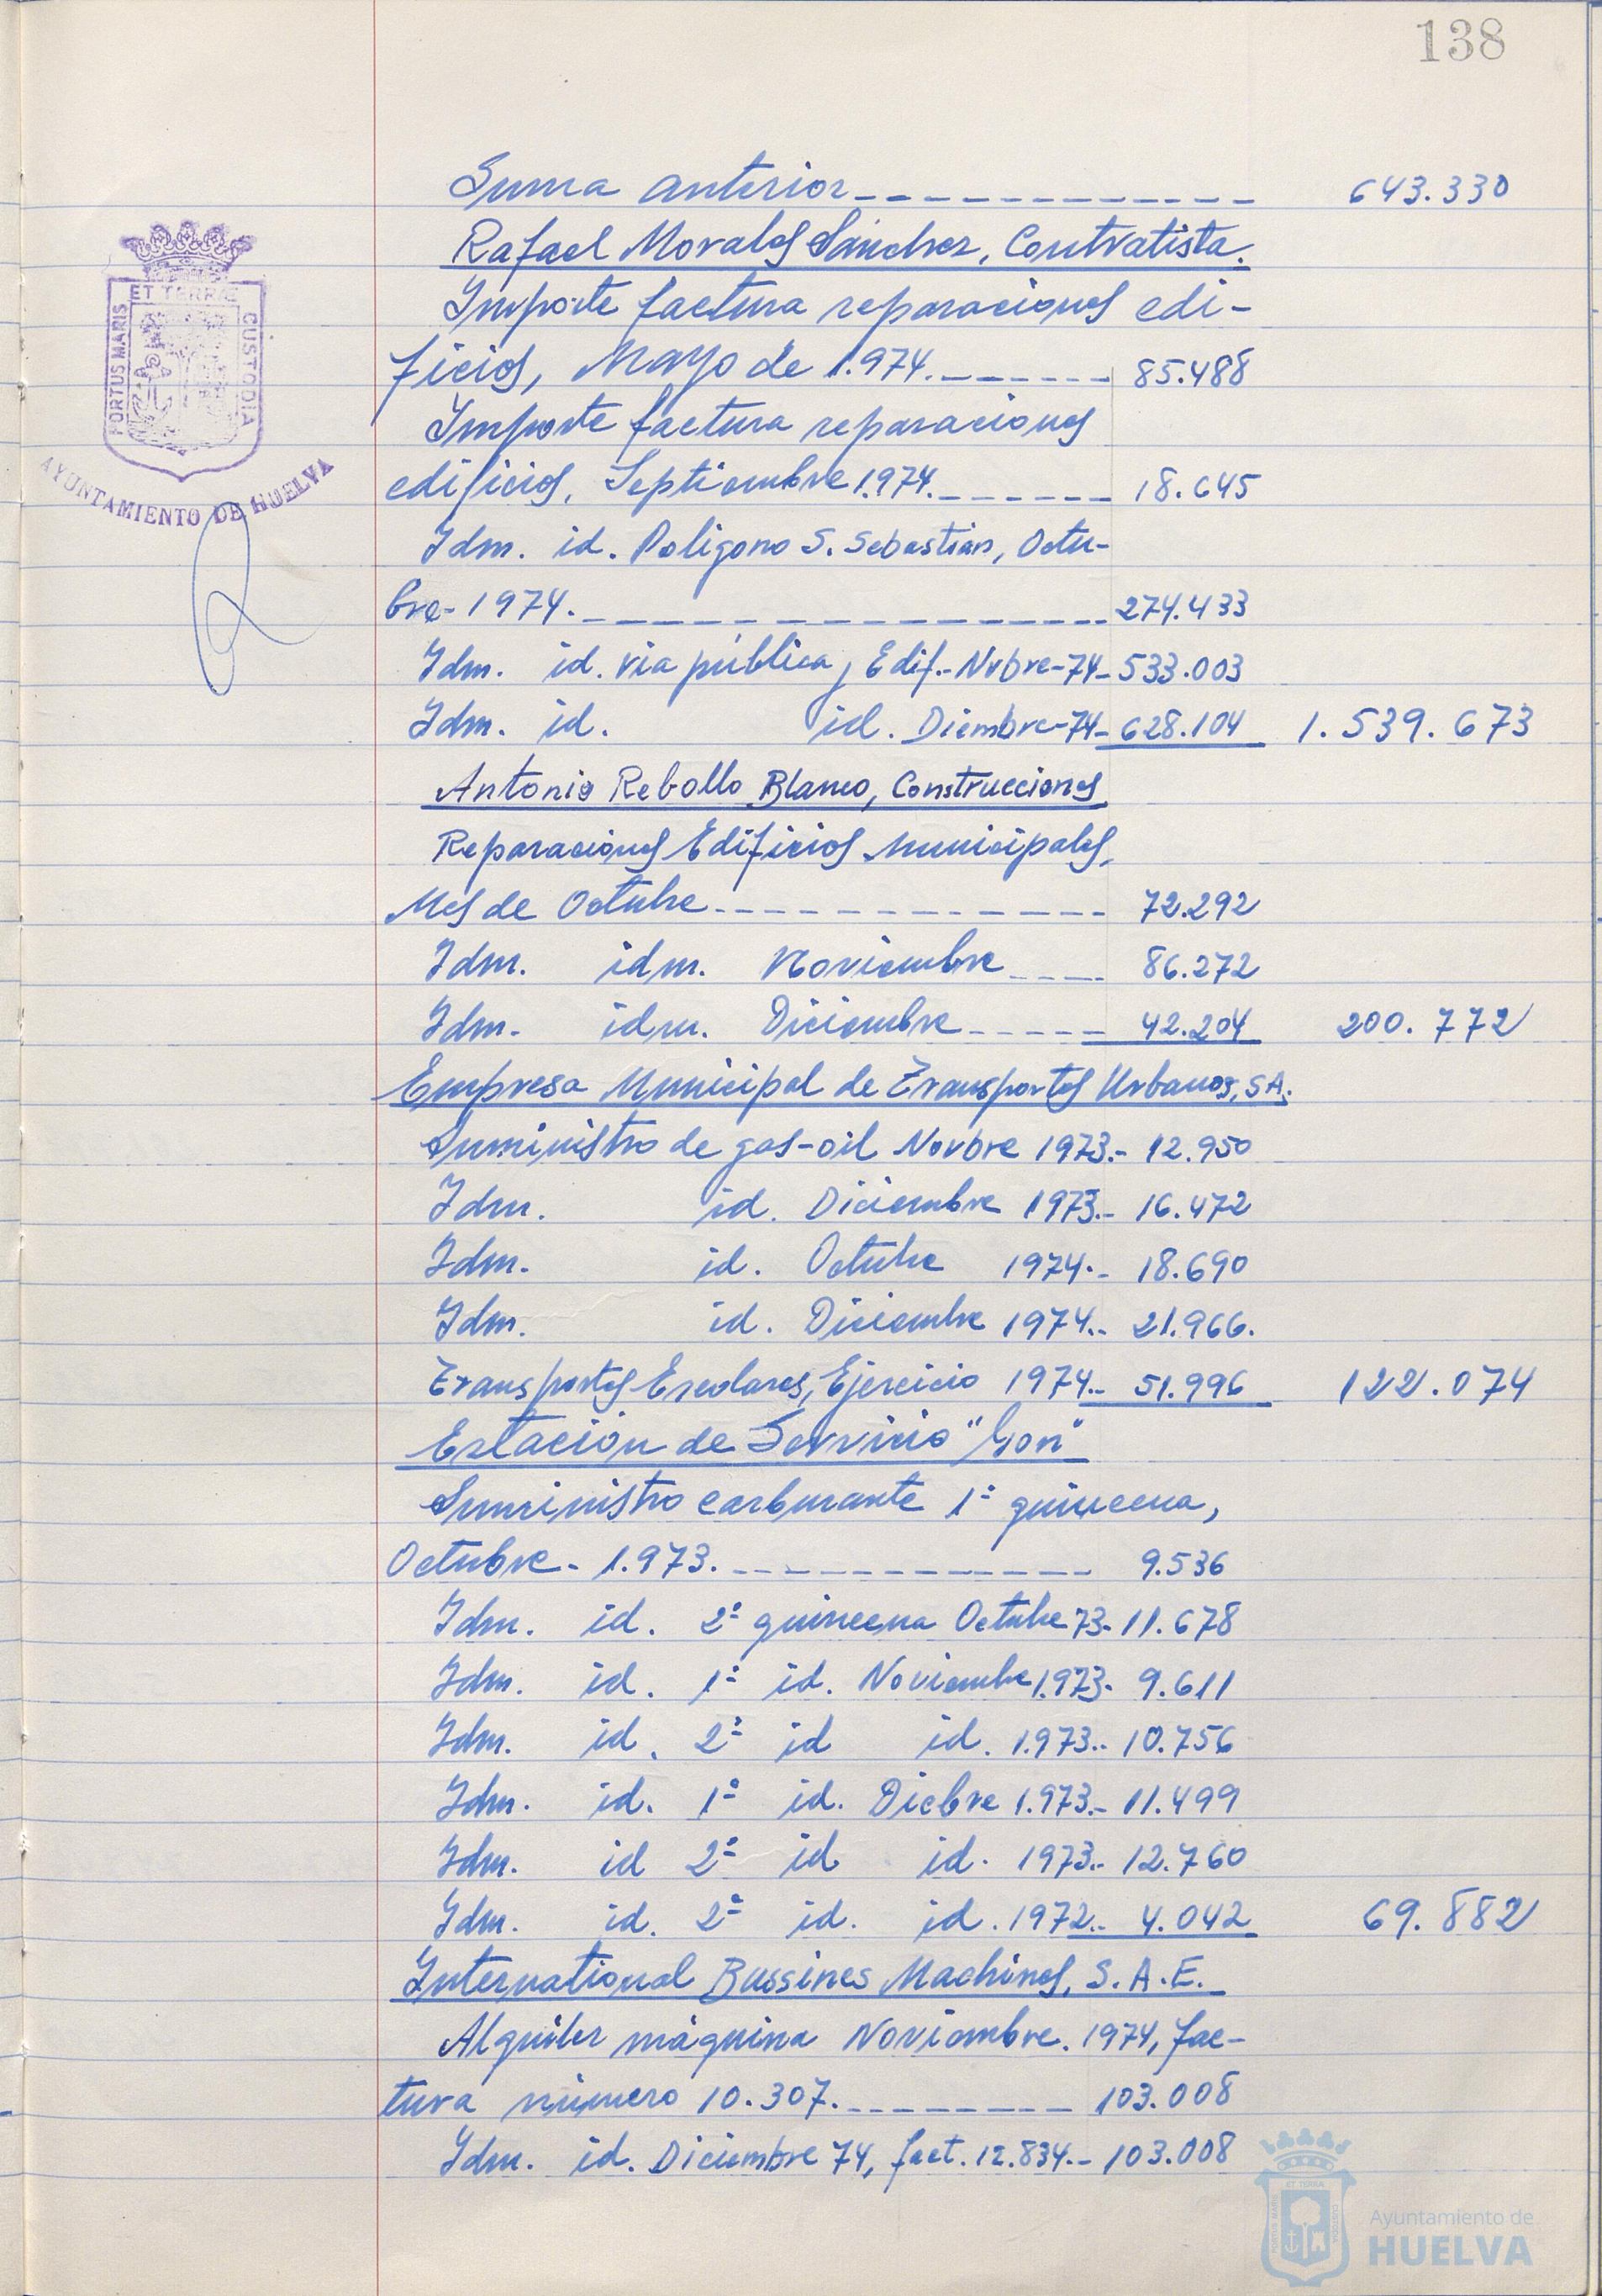 138
Suma anterior 643.330
Rafael Morales Sánchez, Contratista.
Importe factura reparaciones edi-
ficios, Mayo de 1.974. 85.488
Importe factura reparaciones
edificios, Septiembre 1.974. 18.645
Idm. id. Poligono S. Sebastián, Octu-
bre-1974. 274.433
Idm. id. via pública y Edif.-Nvbre-74- 533.003
Idm. id. id. Diembre-74- 628.104 1.539.673
Antonio Rebollo Blanco, Construcciones
Reparaciones Edificios Municipales,
Mes de Octubre 72.292
Idm. idm. Noviembre 86.272
Idm. idm. Diciembre 42.204 200.772
Empresa Municipal de Transportes Urbanos, S.A.
Suministro de gas-oil Novbre 1973.- 12.950
Idm. id. Diciembre 1973.- 16.472
Idm. id. Octubre 1974.- 18.690
Idm. id. Diciembre 1974.- 21.966.
Transportes Escolares, Ejercicio 1974.- 51.996 122.074
Estación de Servicio "Gon"
Suministro carburante 1ª quincena,
Octubre- 1.973. 9.536
Idm. id. 2ª quincena Octubre 73- 11.678
Idm. id. 1ª id. Noviembre 1.973- 9.611
Idm. id. 2ª id id. 1.973.- 10.756
Idm. id. 1ª id. Dicbre 1.973.- 11.499
Idm. id 2ª id id. 1973.- 12.760
Idm. id. 2ª id. id. 1972.- 4.042 69.882
International Bussines Machines, S.A.E.
Alquiler máquina Noviembre. 1974, fac-
tura número 10.307. 103.008
Idm. id. Diciembre 74, fact. 12.834.- 103.008
PORTUS MARIS
ET TERRÆ
CUSTODIA
AYUNTAMIENTO DE HUELVA
Ayuntamiento de
HUELVA